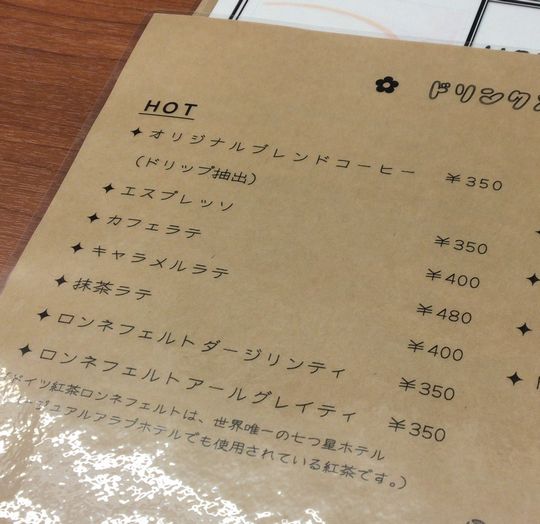 ✿ ドリンク
HOT
✦オリジナルブレンドコーヒー ¥350
(ドリップ抽出)
✦エスプレッソ ¥350
✦カフェラテ ¥400
✦キャラメルラテ ¥480
✦抹茶ラテ ¥400
✦ロンネフェルトダージリンティ ¥350
✦ロンネフェルトアールグレイティ ¥350
ドイツ紅茶ロンネフェルトは、世界唯一の七つ星ホテル
ジュアルアラブホテルでも使用されている紅茶です。)